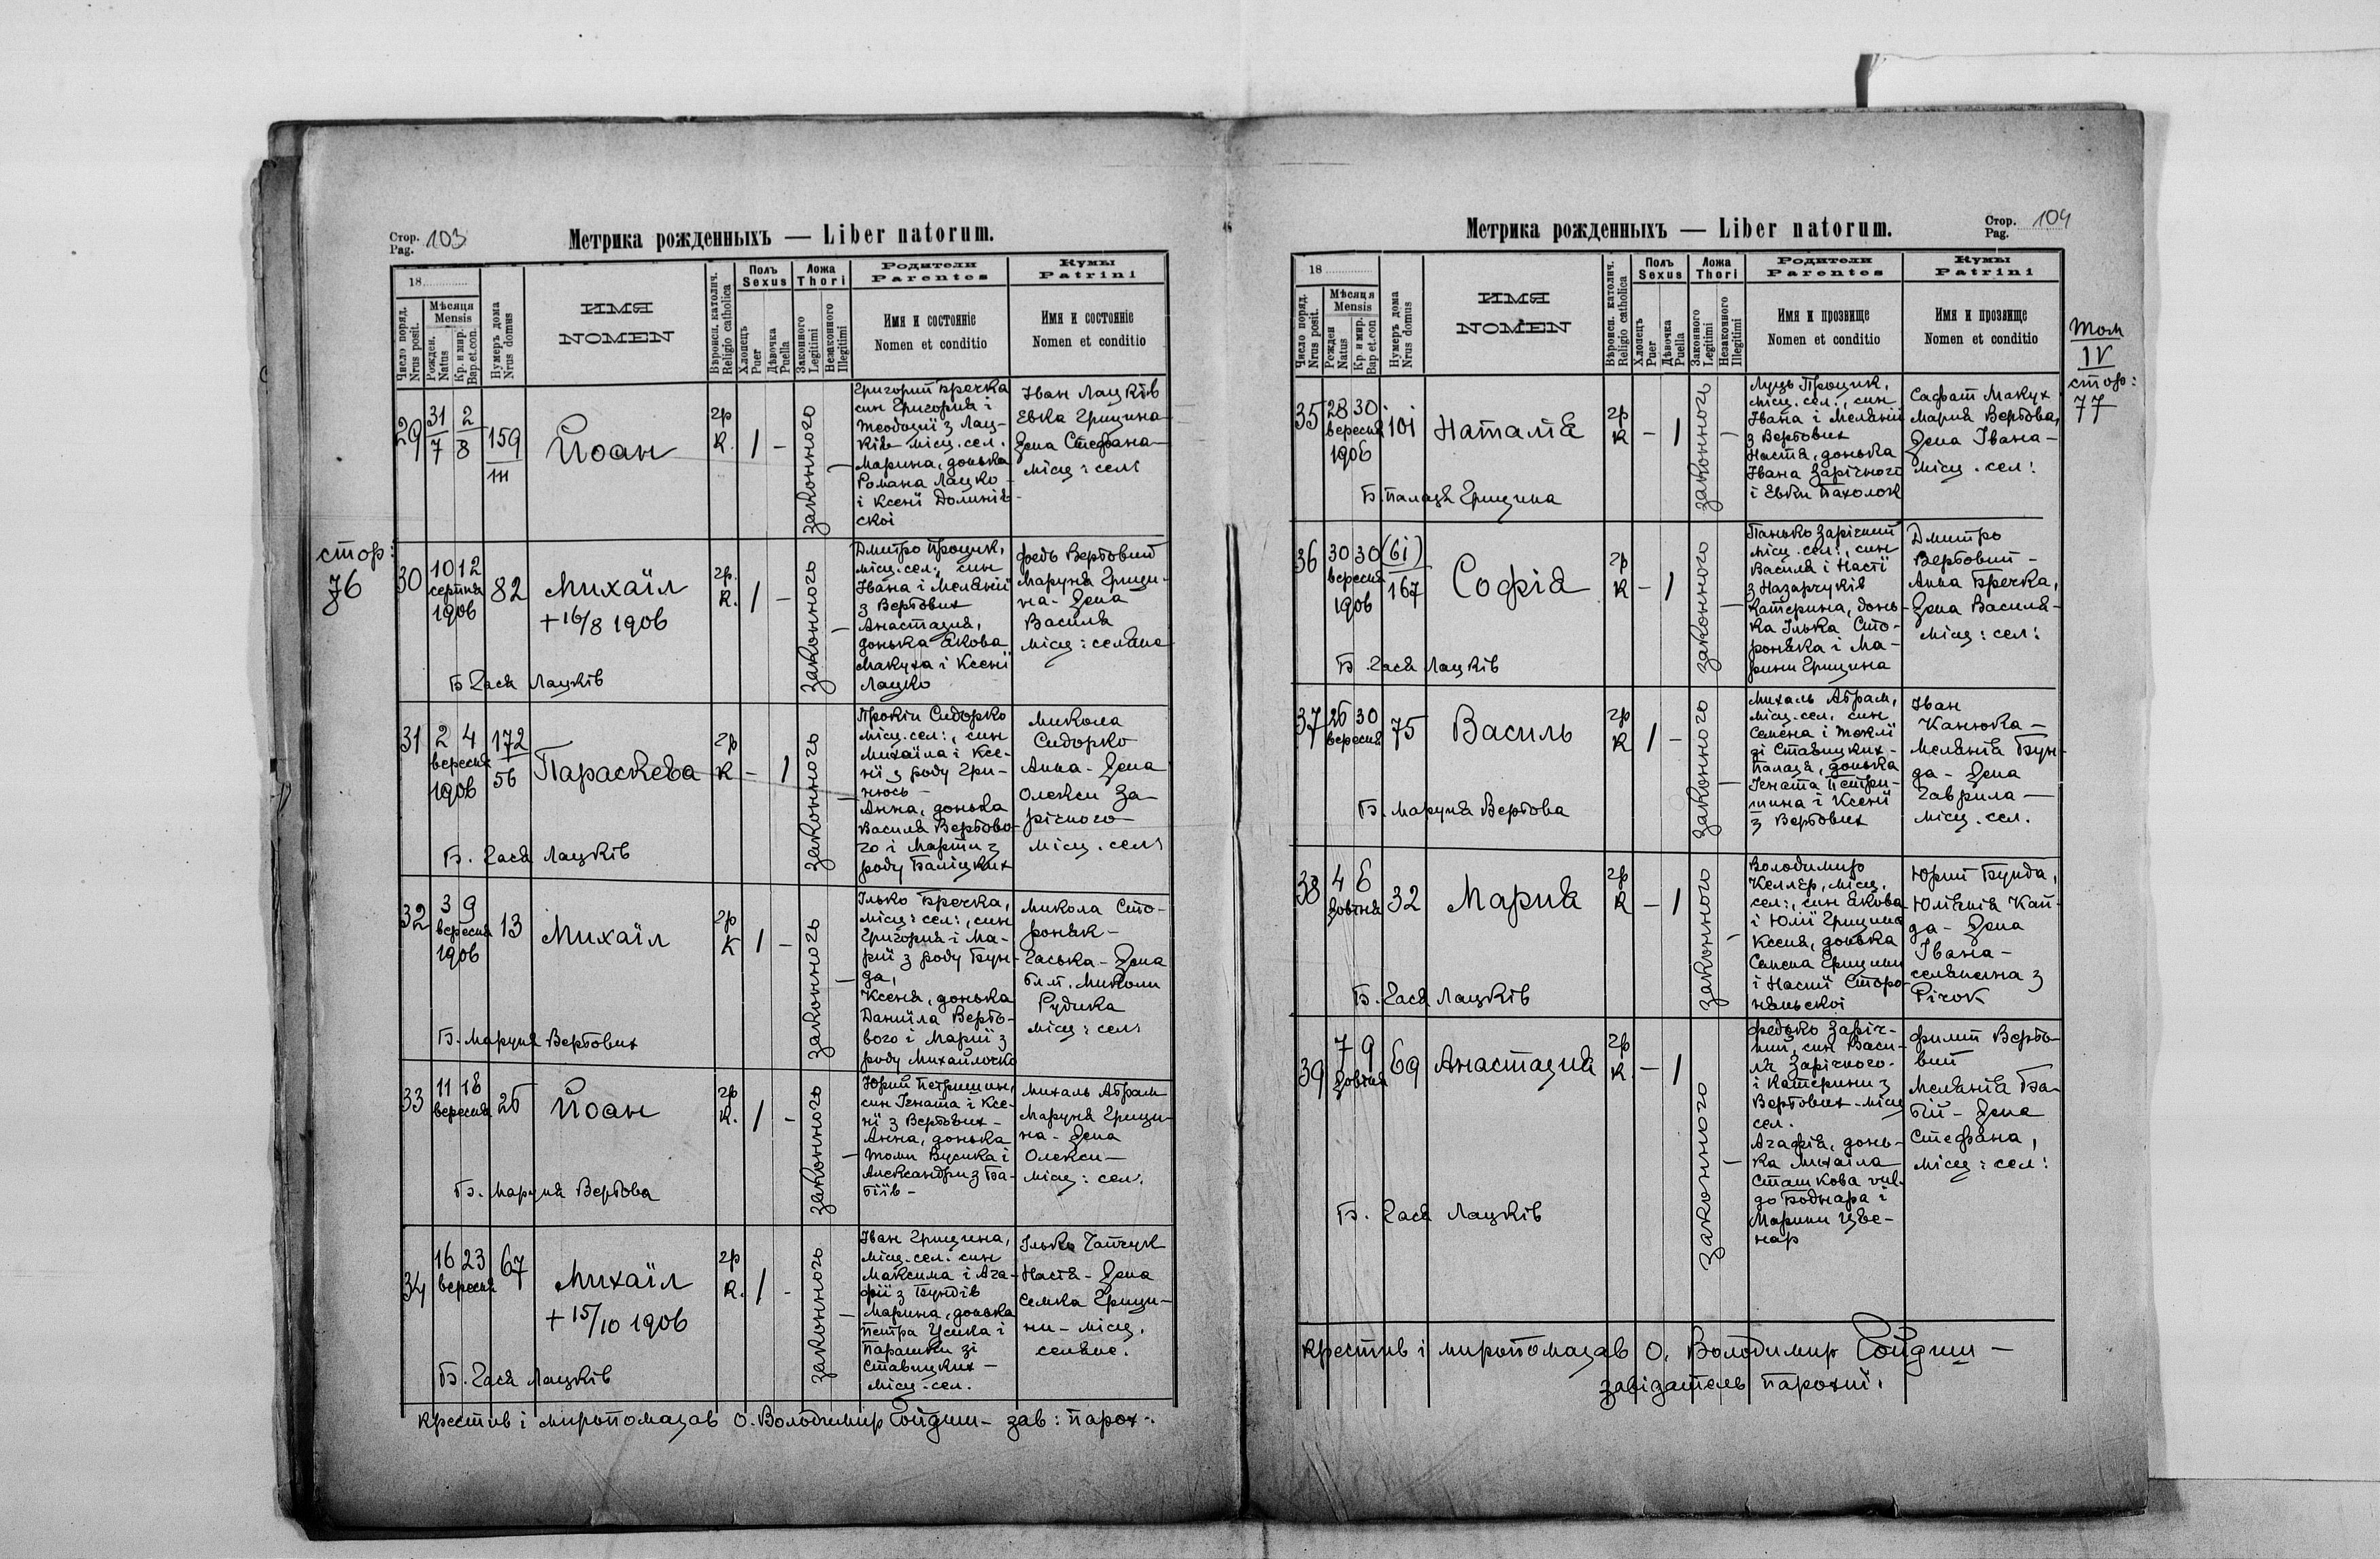 Стор.
Pag. 103
Метрика рожденныхъ — Liber natorum.
18
Число поряд.
Nrus posit.
Мѣсяця
Mensis
Рожден.
Natus
Кр. и мир.
Bap. et. con.
Нумеръ дома
Nrus domus
ИМЯ
NOMEN
Вѣроисп. католич.
Religio catholica
Полъ
Sexus
Хлопецъ
Puer
Дѣвочка
Puella
Ложа
Thori
Законного
Legitimi
Незаконного
Illegitimi
Родители
Parentes
Имя и состояніе
Nomen et conditio
Кумы
Patrini
Имя и состояніе
Nomen et conditio
29
31/7 2/8
159
III
Йоан
гр
К.
1 -
законного
Григорий Бречка
син Григория і
Теодозиї з Лац-
ків місц. сел.
Марина, донька
Романа Лацко
і Ксенї Долинів-
скої
Іван Лацків
Евка Грицина
Жена Стефана
місц: сел:
стор:
76
30
10 12
серпня
1906
82
Михаїл
+ 16/8 1906
гр.
К.
1 -
законного
Дмитро Процик,
місц. сел:, син
Івана і Меланиї
з Вербових
Анастазия,
донька Якова
Макуха і Ксенї
Лацко
Федь Вербовий
Маруня Грици-
на - Жена
Василя
місц: селяне
Б Гася Лацків
31
2 4
вересня
1906
172
56
Параскева
гр
К
- 1
законного
Прокіп Сидорко
місц. сел:, син
Михаїла і Ксе-
нї з роду Гри-
нюсь -
Анна, донька
Василя Вербово-
го і Марти з
роду Баліцких
Микола
Сидорко
Анна - Жена
Олекси За-
річного
місц. сел:
Б. Гася Лацків
32
3 9
вересня
1906
13
Михаїл
гр
К
1 -
законного
Ілько Бречка,
місц: сел:, син
Григория і Ма-
риї з роду Бун-
да,
Ксеня, донька
Даниїла Вербо-
вого і Мариї з
роду Михайлочко
Микола Сто-
роняк -
Гаська - Жена
бл.п. Миколи
Рудика
місц: сел:
Б. Маруня Вербових
33
11 18
вересня
25
Йоан
гр
К.
1 -
законного
Юрий Петришин,
син Ігната і Ксе-
нї з Вербових -
Анна, донька
Томи Вусика і
Александри з Ба-
біїв -
Михаль Абрам
Маруня Грици-
на - Жена
Олекси -
місц: сел.
Б. Маруня Вербова
34
16 23
вересня
67
Михаїл
+ 15/10 1906
гр
К.
1 -
законного
Іван Грицина,
місц. сел: син
Максима і Ага-
фиї з Бундів
Марина, донька
Петра Усика і
Парашки зі
Ставицких -
місц. сел.
Ілько Гайчук
Настя - Жена
Семка Грици-
ни - місц.
селяне.
Б. Гася Лацків
крестив і миропомазав О. Володимир Гойдиш - зав: парох -.
Стор.
Pag. 104
Метрика рожденныхъ — Liber natorum.
18
Число поряд.
Nrus posit.
Мѣсяця
Mensis
Рожден
Natus
Кр. и мир.
Bap. et. con
Нумеръ дома
Nrus domus
ИМЯ
NOMEN
Вѣроисп. католич.
Religio catholica
Полъ
Sexus
Хлопецъ
Puer
Дѣвочка
Puella
Ложа
Thori
Законного
Legitimi
Незаконного
Illegitimi
Родители
Parentes
Имя и прозвище
Nomen et conditio
Кумы
Patrini
Имя и прозвище
Nomen et conditio
Том
IV
стор:
77
35
28 30
вересня
1906
101
Наталія
гр
К
- 1
законного
Луць Процик,
місц. сел:, син
Івана і Меланиї
з Вербових
Настя, донька
Івана Зарічного
і Евки Пахолок
Сафат Макух
Мария Вербова,
Жена Івана -
місц. сел:
Б. Палазя Грицина
36
30 30
вересня
1906
(61)
167
Софія
гр
К
- 1
законного
Панько Зарічний
місц. сел:, син
Василя і Насті
з Назарчуків
Катерина, донь-
ка Ілька Сто-
роняка і Ма-
рини Грицина
Дмитро
Вербовий -
Анна Бречка,
Жена Василя -
місц: сел:
Б. Гася Лацків
37
26 30
вересня
75
Василь
гр
К
1 -
законного
Михаль Абрам,
місц. сел. син
Семена і Теклї
зі Ставицких -
Палазя, донька
Ігната Петри-
шина і Ксенї
з Вербових
Іван
Канюка -
Меланія Бун-
да - Жена
Гаврила -
місц. сел.
Б. Маруня Вербова
38
4 6
Жовтня
32
Мария
гр
К
- 1
законного
Володимир
Келлєр, місц.
сел:, син Якова
і Юлиї Грицина
Ксеня, донька
Семена Грицини
і Настї Сторо-
няньскої
Юрий Бунда,
Юліянія Кай-
да - Жена
Івана -
селянина з
Річок
Б. Гася Лацків
39
7 9
Жовтня
69
Анастазия
гр
К.
- 1
законного
Федько Заріч-
ний, син Васи-
ля Зарічного -
і Катерини з
Вербових - місц
сел.
Агафія, донь-
ка Михаїла
Сташкова vul-
go Боднара і
Марини Цве-
нар
Филип Вербо-
вий
Меланія Ба-
бій - Жена
Стефана,
місц: сел:
Б. Гася Лацків
крестив і миропомазав О. Володимир Гойдиш -
завідатель парохиї.